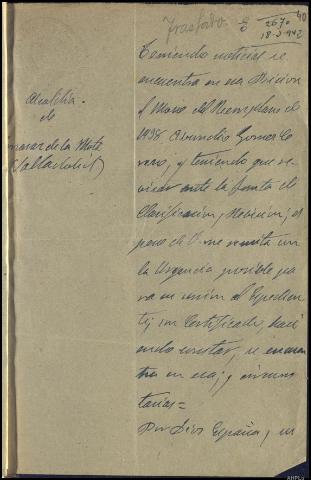 40
Trasfado. E 2670
18-3-942
Alcaldia
de
de la Mota
(Valladolid)
Teniendo noticias se
encuentra en esa Prision
el Mozo del Reemplazo de
1938 Gomez
y teniendo que re
ante la Junta de
Clasificacion y Revision, es
pero de V. me remita con
la Urgencia posible pa
ra su union al Expedien
te, un Certificado, haci
endo constar, se encuen
tra en esa, y circuns
tancias=
Por Dios España y su
AHPLu